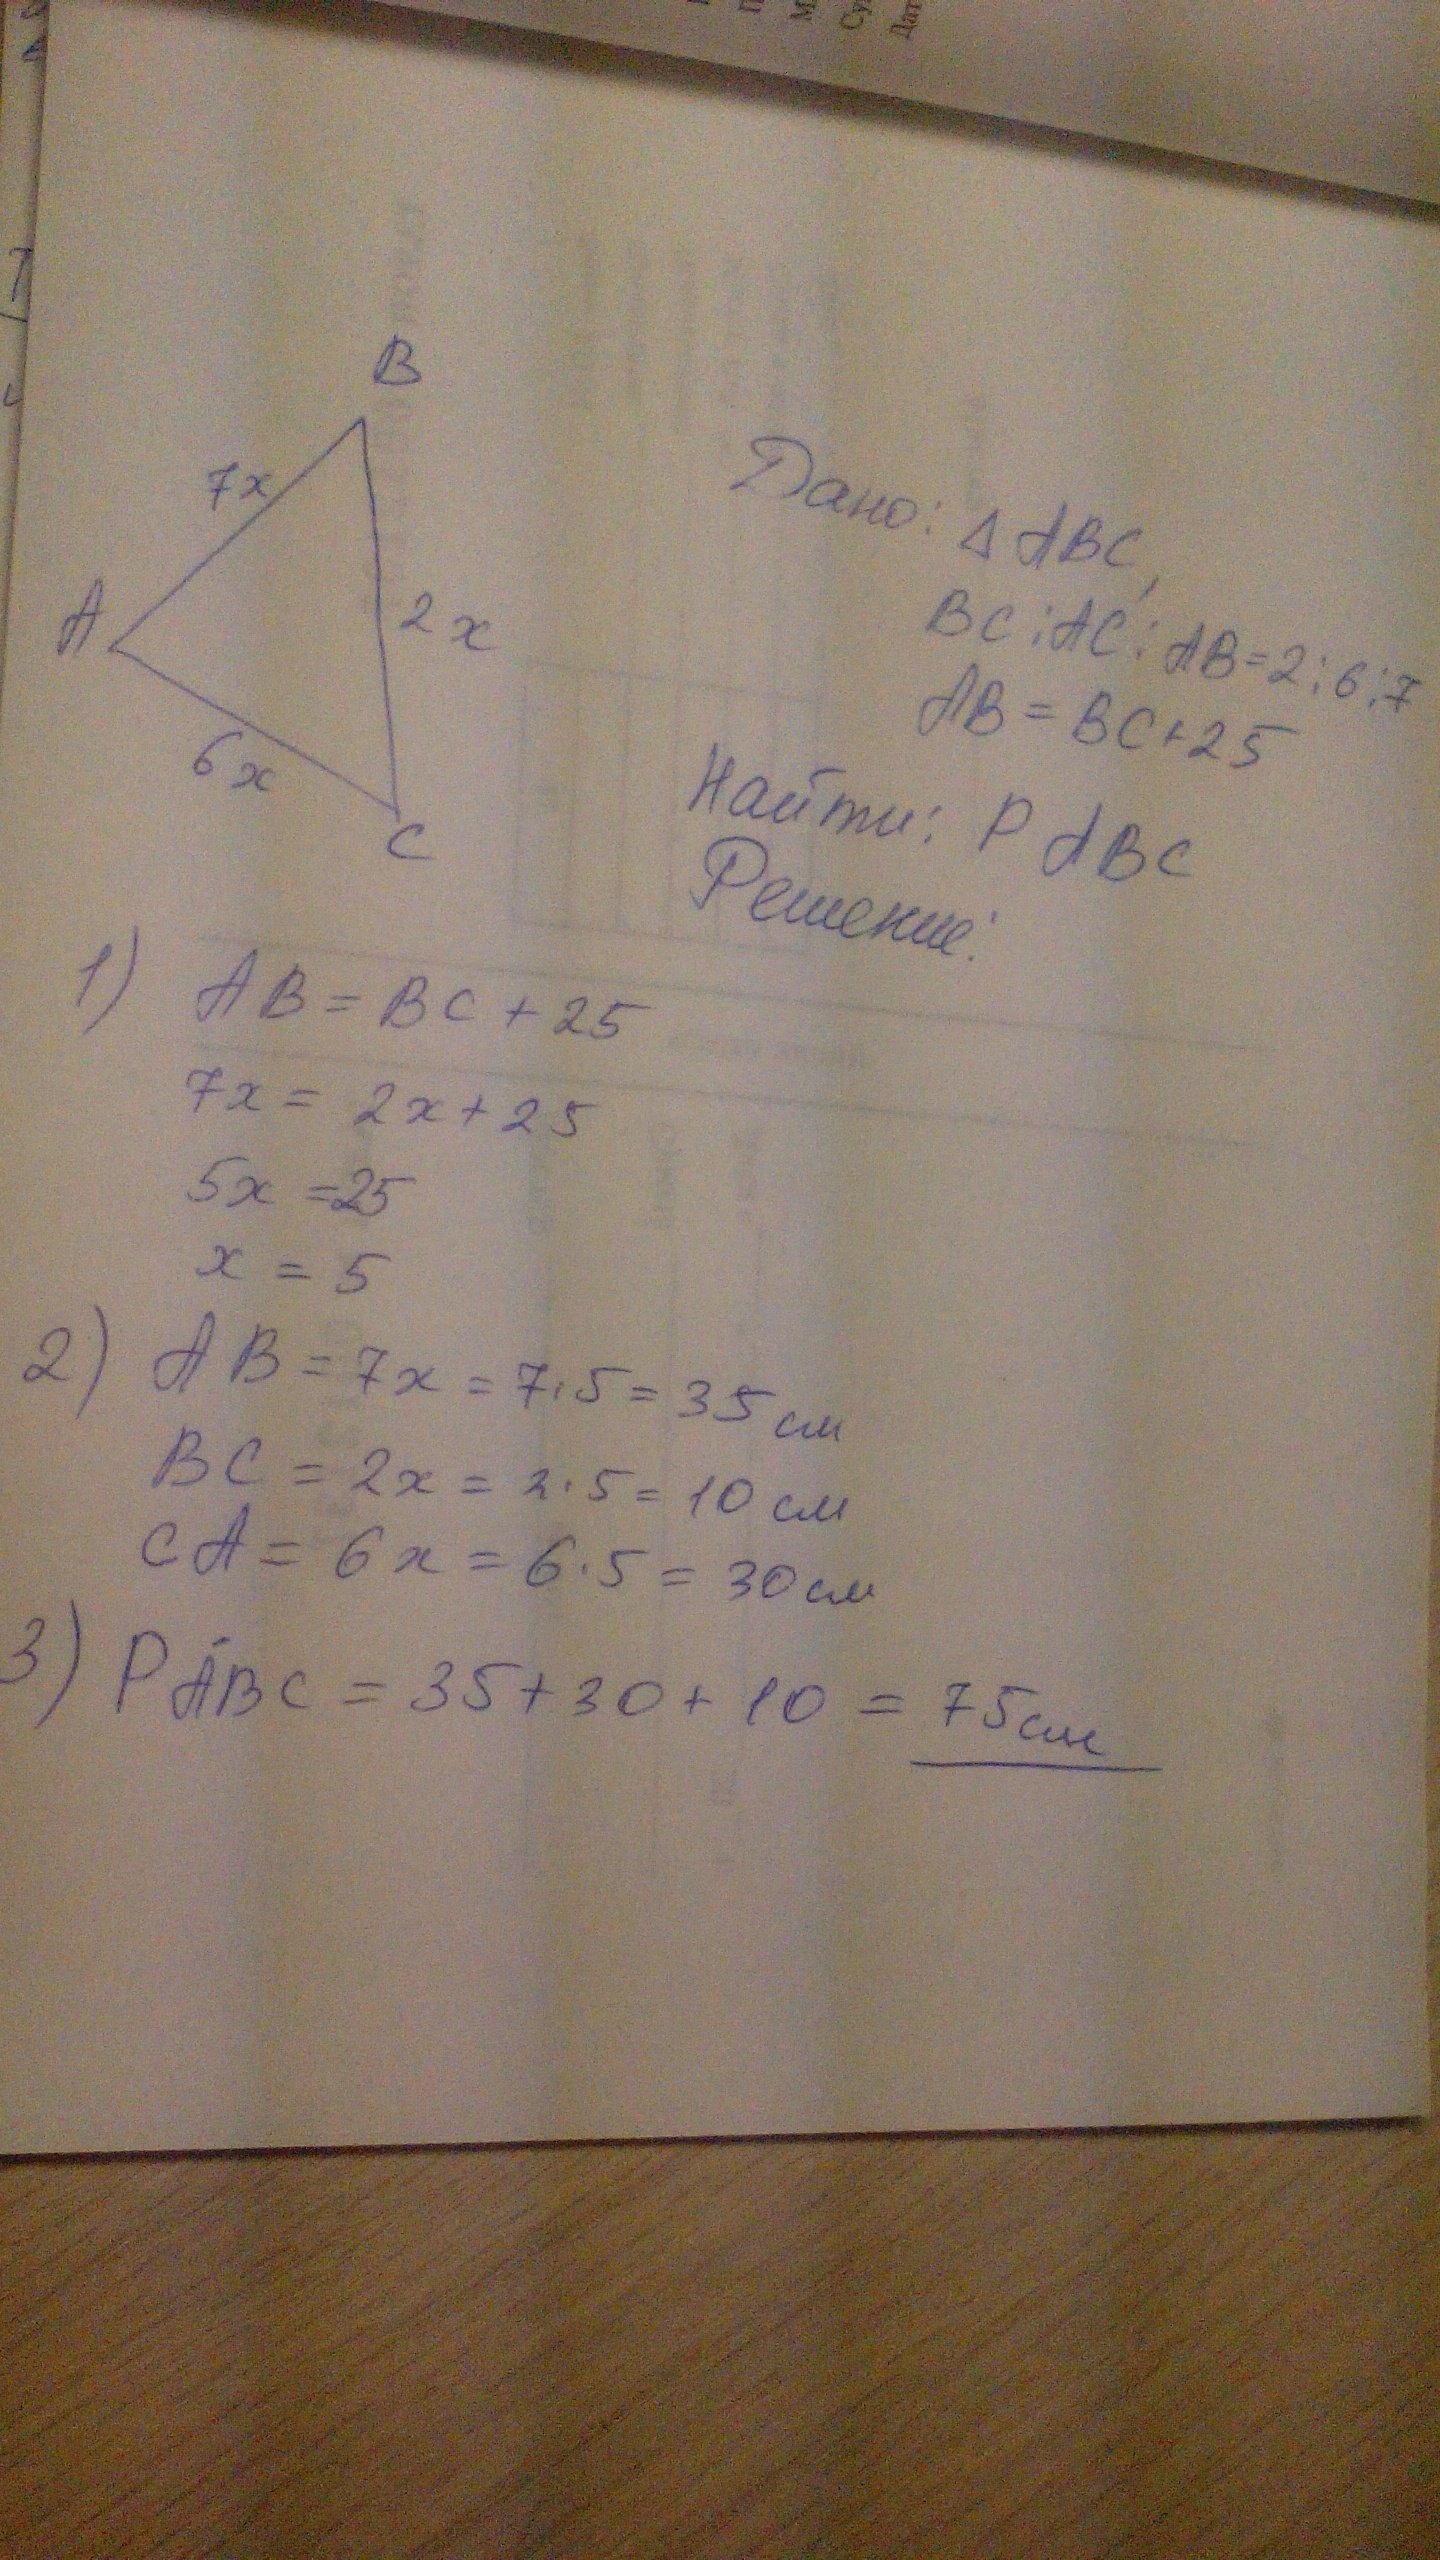 B
7x
A
2x
6x
C
Дано: Δ ABC,
BC:AC:AB=2:6:7
AB=BC+25
Найти: P ABC
Решение:
1) AB=BC+25
7x=2x+25
5x=25
x=5
2) AB=7x=7·5=35см
BC=2x=2·5=10см
CA=6x=6·5=30см
3) PABC=35+30+10=75см